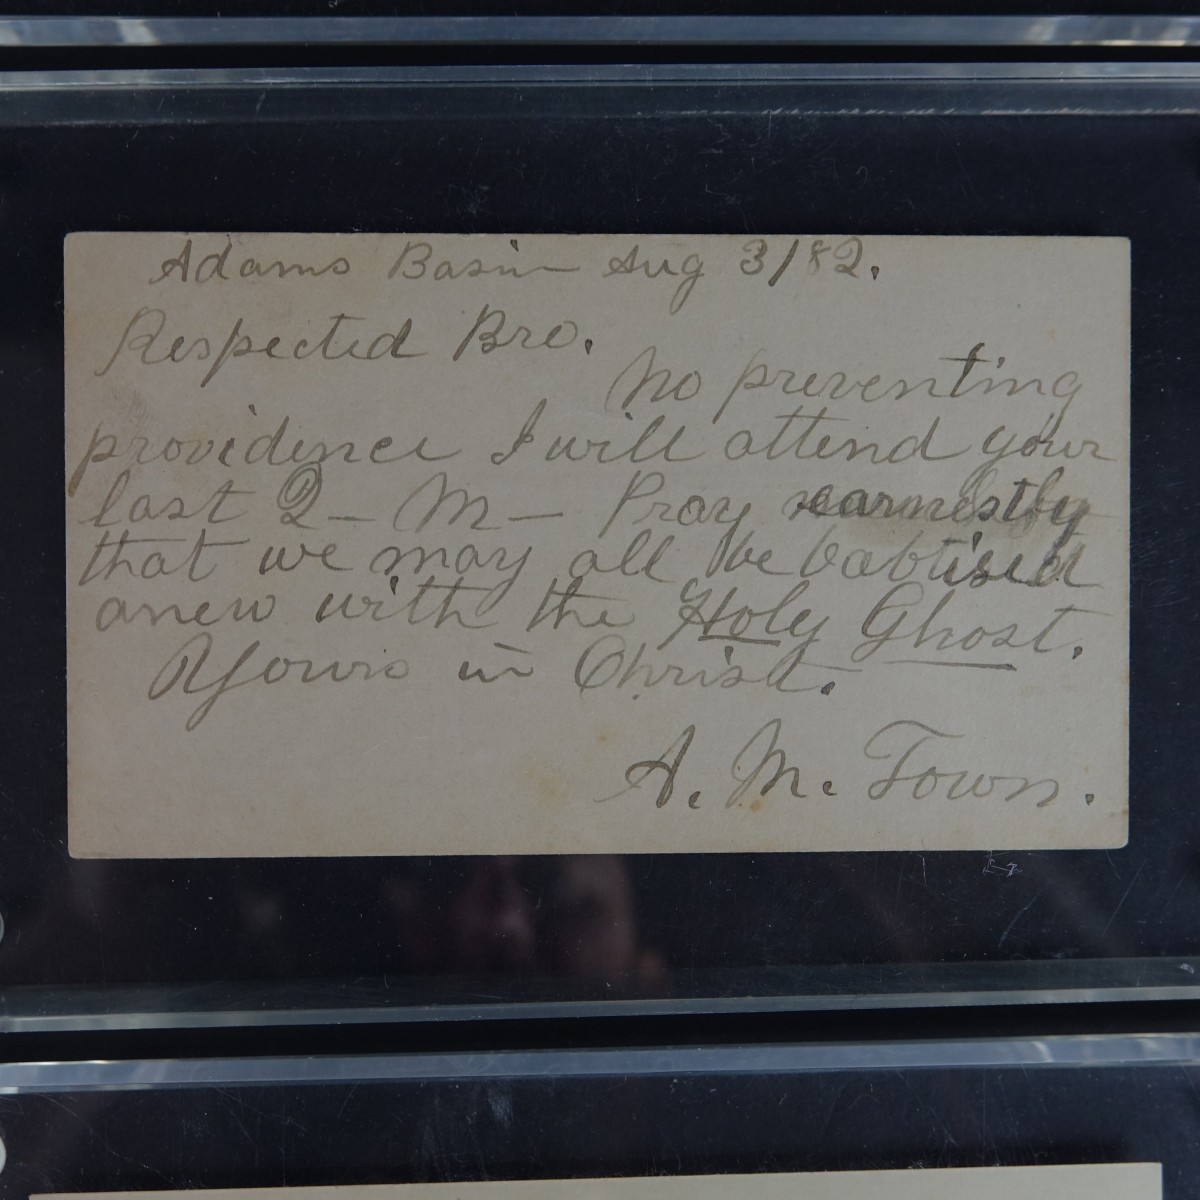 Adams Basin Aug 3/82.
Respected Bro.
No preventing
providence I will attend your
last Q - M - Pray earnestly
that we may all be babtised
anew with the Holy Ghost.
Yours in Christ.
A. M. Town.